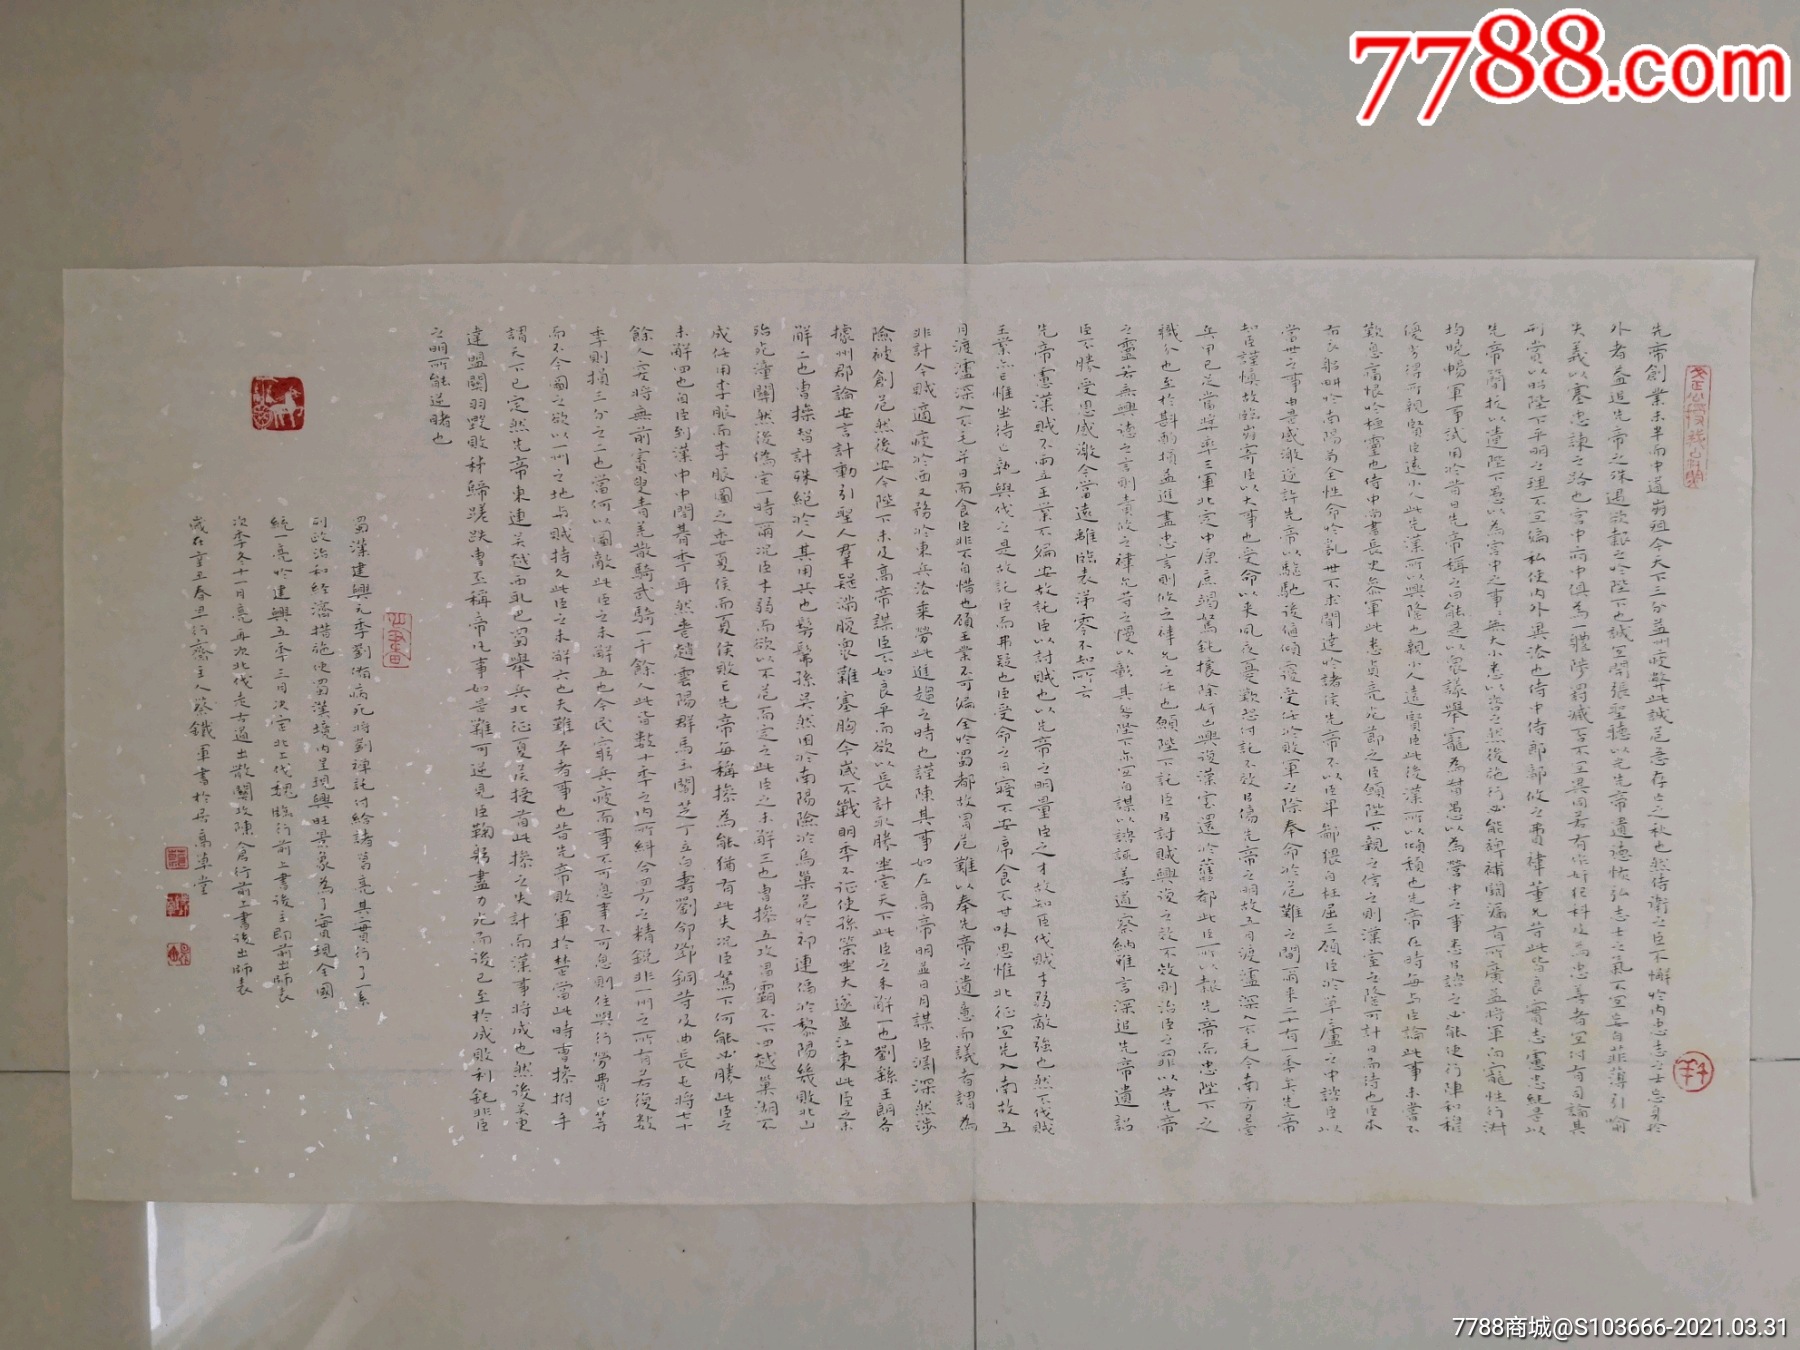 7788.com
先帝創業未半而中道崩殂今天下三分益州疲弊此誠危急存亡之秋也然侍衛之臣不懈於內忠志之士忘身於
外者蓋追先帝之殊遇欲報之於陛下也誠宜開張聖聽以光先帝遺德恢弘志士之氣不宜妄自菲薄引喻
失義以塞忠諫之路也宮中府中俱為體陟罰臧否不宜異同若有作奸犯科及為忠善者宜付有司論其
刑賞以昭陛下平明之理不宜偏私使內外異法也侍中侍郎郭攸之費禕董允等此皆良實志慮忠純是以
先帝簡拔以遺陛下愚以為宮中之事事無大小悉以咨之然後施行必能裨補闕漏有所廣益將軍向寵性行淑
均曉暢軍事試用於昔日先帝稱之曰能是以眾議舉寵為督愚以為營中之事悉以諮之必能使行陣和穆
優劣得所親賢臣遠小人此先漢所以興隆也親小人遠賢臣此後漢所以傾頹也先帝在時每與臣論此事未嘗不
歎息痛恨於桓靈也侍中尚書長史參軍此悉貞亮死節之臣願陛下親之信之則漢室之隆可計日而待也臣本
布衣躬畊於南陽苟全性命於亂世不求聞達於諸侯先帝不以臣卑鄙猥自枉屈三顧臣於草廬之中諮臣以
當世之事由是感激遂許先帝以驅馳後值傾覆受任於敗軍之際奉命於危難之間爾來二十有一季矣先帝
知臣謹慎故臨崩寄臣以大事也受命以來夙夜憂歎恐付託不效以傷先帝之明故五月渡瀘深入不毛今南方已定
兵甲已足當獎率三軍北定中原庶竭駑鈍攘除奸凶興復漢室還於舊都此臣所以報先帝而忠陛下之
職分也至於斟酌損益進盡忠言則攸之禕允之任也願陛下託臣以討賊興復之效不效則治臣之罪以告先帝
之靈若無興德之言則責攸之禕允等之慢以彰其咎陛下亦宜自謀以諮諏善道察納雅言深追先帝遺詔
臣不勝受恩感激今當遠離臨表涕零不知所云
先帝慮漢賊不兩立王業不偏安故託臣以討賊也以先帝之明量臣之才故知臣伐賊才弱敵強也然不伐賊
王業亦亡惟坐待亡孰與伐之是故託臣而弗疑也臣受命之日寢不安席食不甘味思惟北征宜先入南故五
月渡瀘深入不毛并日而食臣非不自惜也顧王業不可偏全於蜀都故冒危難以奉先帝之遺意而議者謂為
非計今賊適疲於西又務於東兵法乘勞此進趨之時也謹陳其事如左高帝明並日月謀臣淵深然涉
險被創危然後安今陛下未及高帝謀臣不如良平而欲以長計取勝坐定天下此臣之未解一也劉繇王朗各
據州郡論安言計動引聖人群疑滿腹眾難塞胸今歲不戰明季不征使孫策坐大遂並江東此臣之未
解二也曹操智計殊絕於人其用兵也髣髴孫吳然困於南陽險於烏巢危於祁連偪於黎陽幾敗北山
殆死潼關然後偽定一時爾況臣才弱而欲以不危而定之此臣之未解三也曹操五攻昌霸不下四越巢湖不
成任用李服而李服圖之委夏侯而夏侯敗亡先帝每稱操為能猶有此失況臣駑下何能必勝此臣之
未解四也自臣到漢中中間朞季耳然喪趙雲陽群馬玉閻芝丁立白壽劉郃鄧銅等及曲長屯將七十
餘人突將無前賨叟青羌散騎武騎一千餘人此皆數十季之內所糾合四方之精銳非一州之所有若復數
季則損三分之二也當何以圖敵此臣之未解五也今民窮兵疲而事不可息事不可息則住與行勞費正等
而不今圖之欲以一州之地與賊持久此臣之未解六也夫難平者事也昔先帝敗軍於楚當此時曹操拊手
謂天下已定然先帝東連吳越西取巴蜀舉兵北征夏侯授首此操之失計而漢事將成也然後吳更
違盟關羽毀敗秭歸蹉跌曹丕稱帝凡事如是難可逆見臣鞠躬盡力死而後已至於成敗利鈍非臣
之明所能逆睹也
蜀漢建興元季劉備病死將劉禪託付給諸葛亮其實行了一系
列政治和經濟措施使蜀漢境內呈現興旺景象為了實現全國
統一亮於建興五季三月決定北上伐魏臨行前上書後主即前出師表
次季冬十一月亮再次北伐走古道出散關攻陳倉行前上書後出師表
歲在辛丑春丑行齋主人蔡鐵軍書於居高草堂
7788商城@S103666-2021.03.31